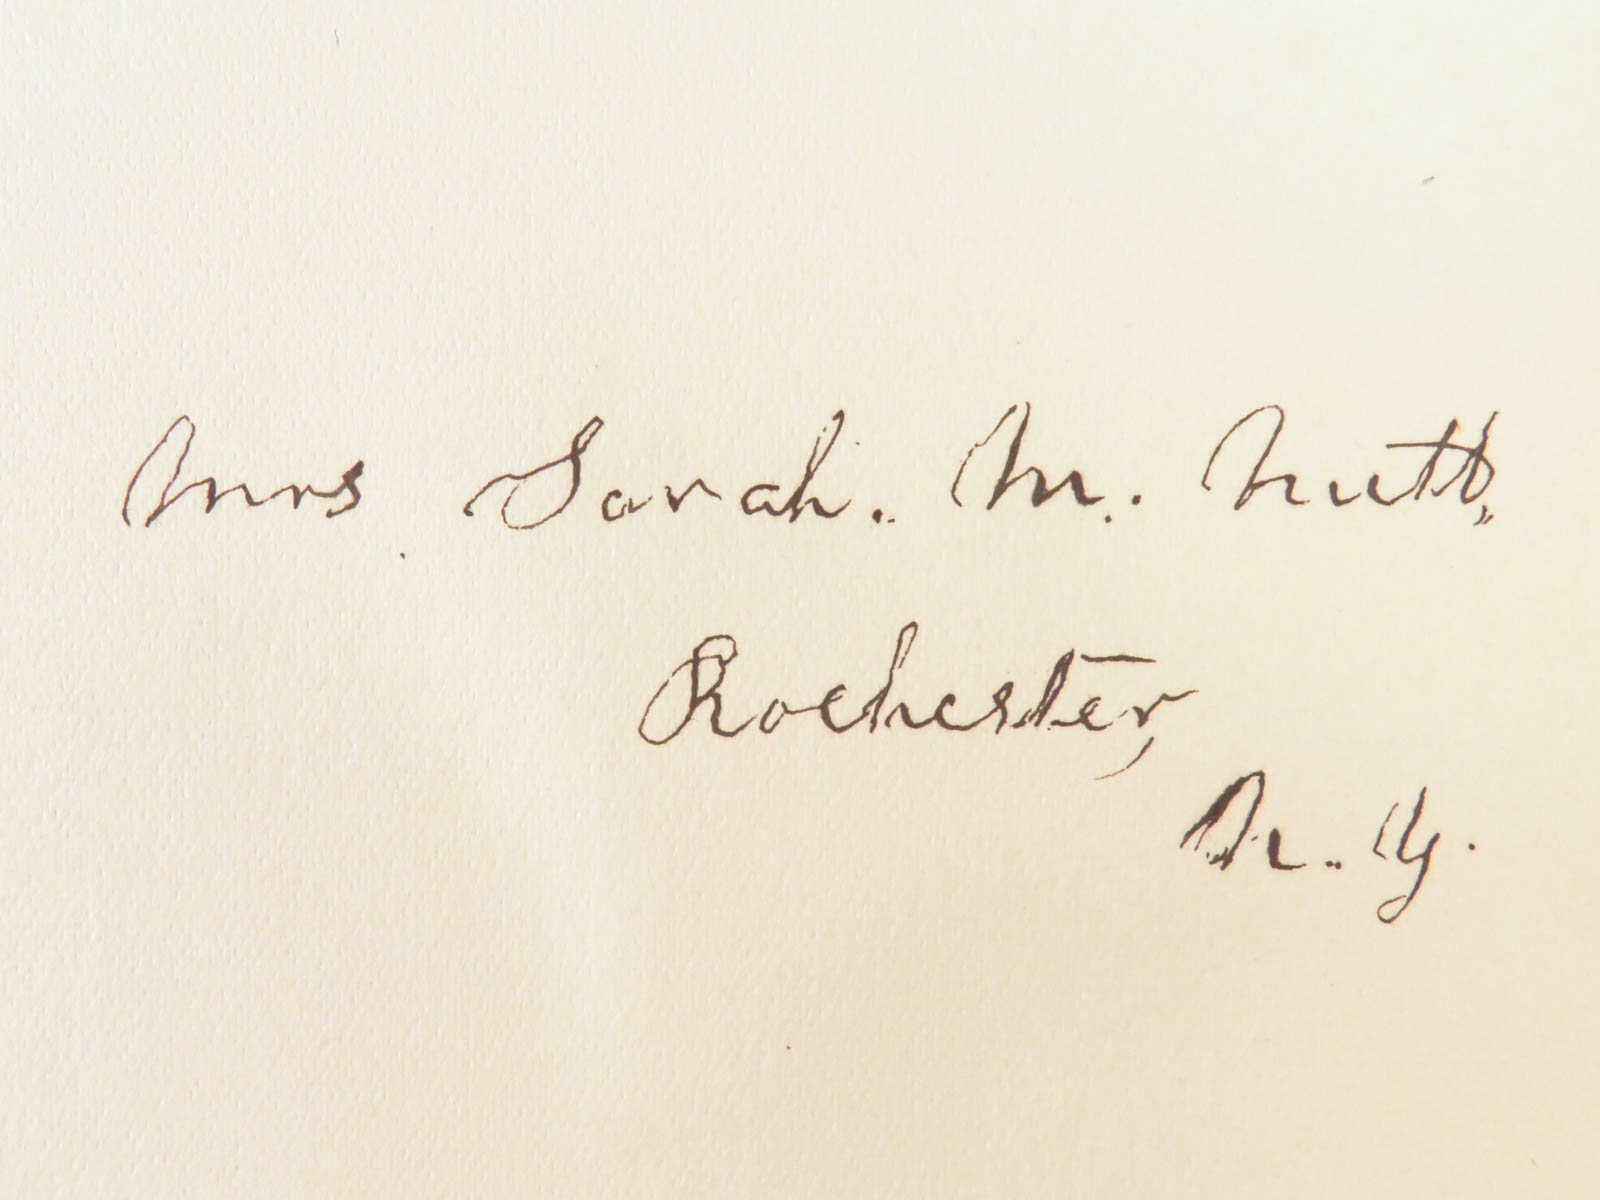 Mrs Sarah. M. Nutt,
Rochester,
N. Y.